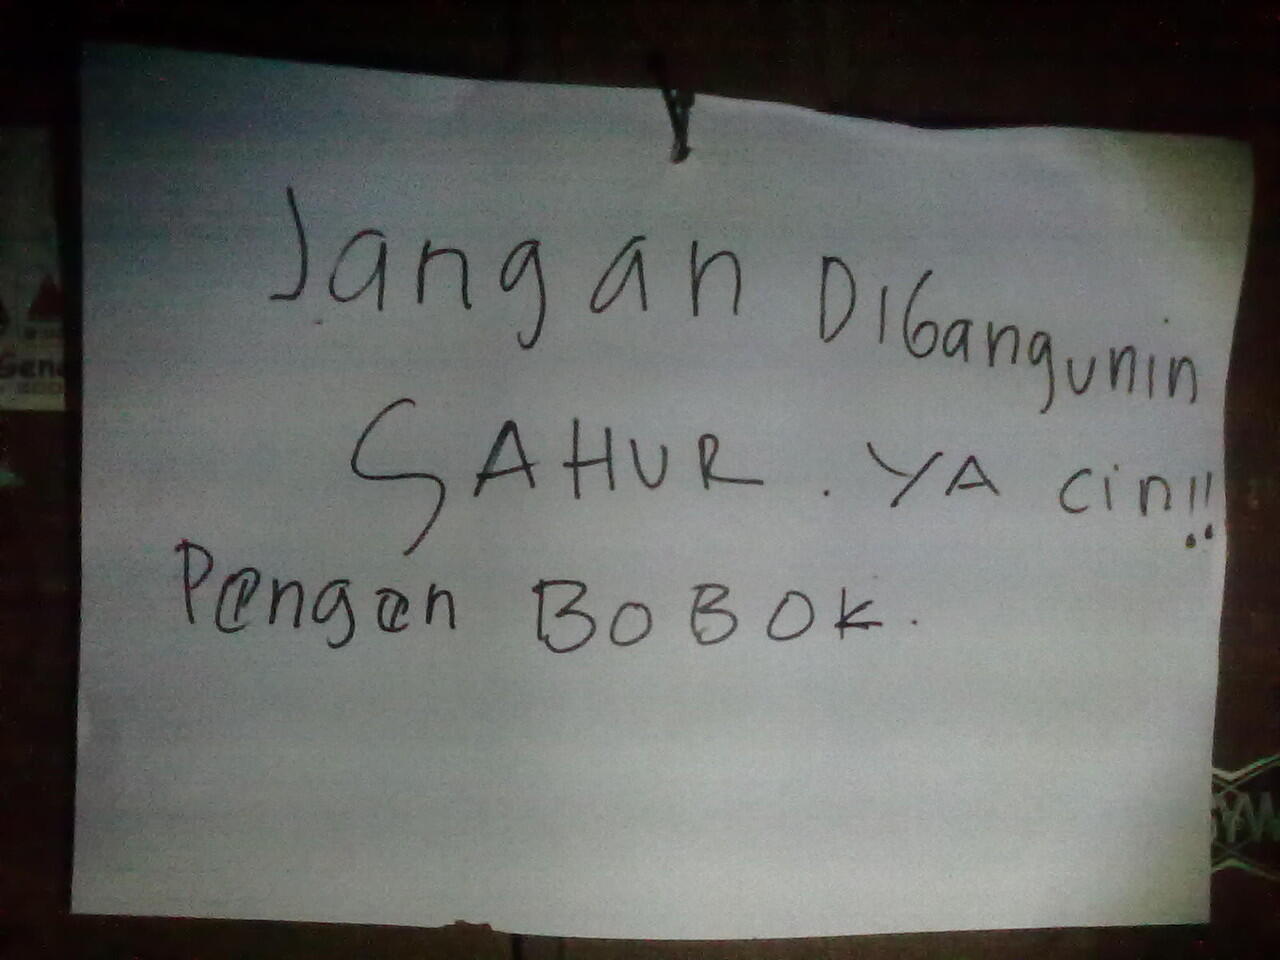 Jangan DIbangunin
SAHUR. YA cin!!
P@ng@n BOBOK.
Gen